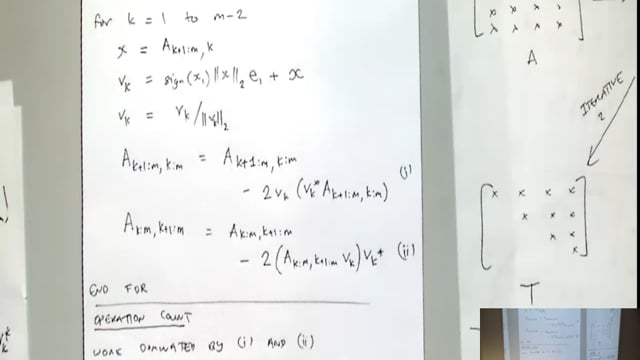 for k = 1 to m-2
x = A_{k+1:m, k}
v_k = sign(x_1) ||x||_2 e_1 + x
v_k = v_k / ||v_k||_2
A_{k+1:m, k:m} = A_{k+1:m, k:m}
- 2 v_k (v_k^* A_{k+1:m, k:m}) (i)
A_{k:m, k+1:m} = A_{k:m, k+1:m}
- 2 (A_{k:m, k+1:m} v_k) v_k^* (ii)
END FOR
OPERATION COUNT
WORK DOMINATED BY (i) AND (ii)
x x x x
x x x x
A
ITERATIVE
2
x x x x
x x x
x x
x
T